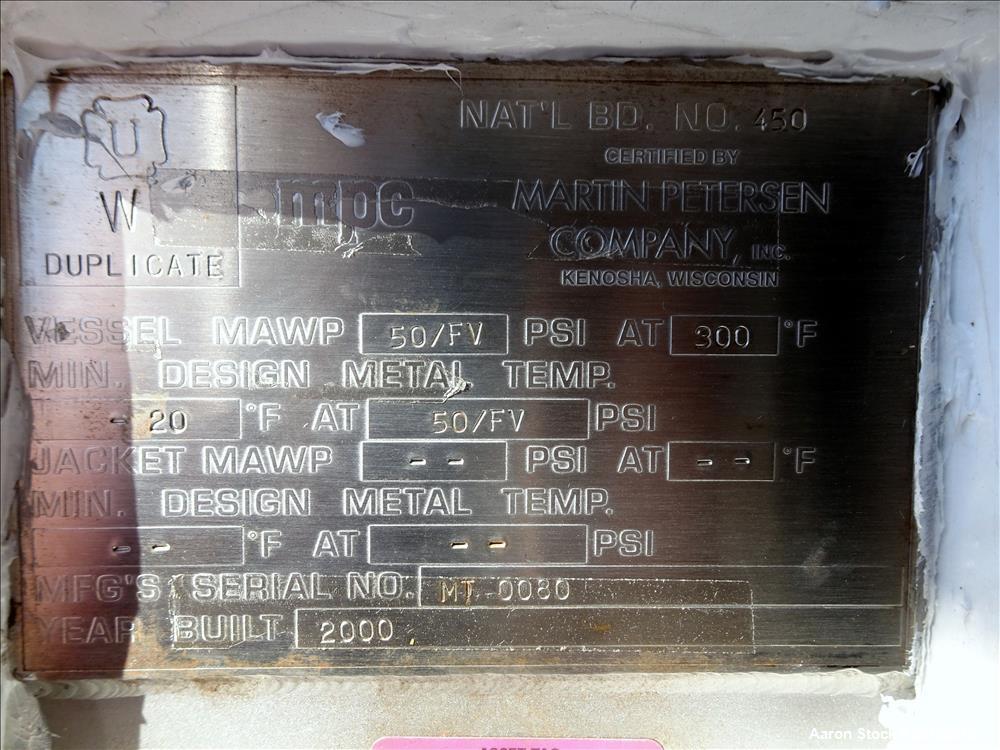 U
W
DUPLICATE
NAT'L BD. NO. 450
CERTIFIED BY
mpc
MARTIN PETERSEN
COMPANY, INC.
KENOSHA, WISCONSIN
VESSEL MAWP 50/FV PSI AT 300 °F
MIN. DESIGN METAL TEMP.
-20 °F AT 50/FV PSI
JACKET MAWP -- PSI AT -- °F
MIN. DESIGN METAL TEMP.
-- °F AT -- PSI
MFG'S SERIAL NO. MT-0080
YEAR BUILT 2000
ASSET TAG
Aaron Stock